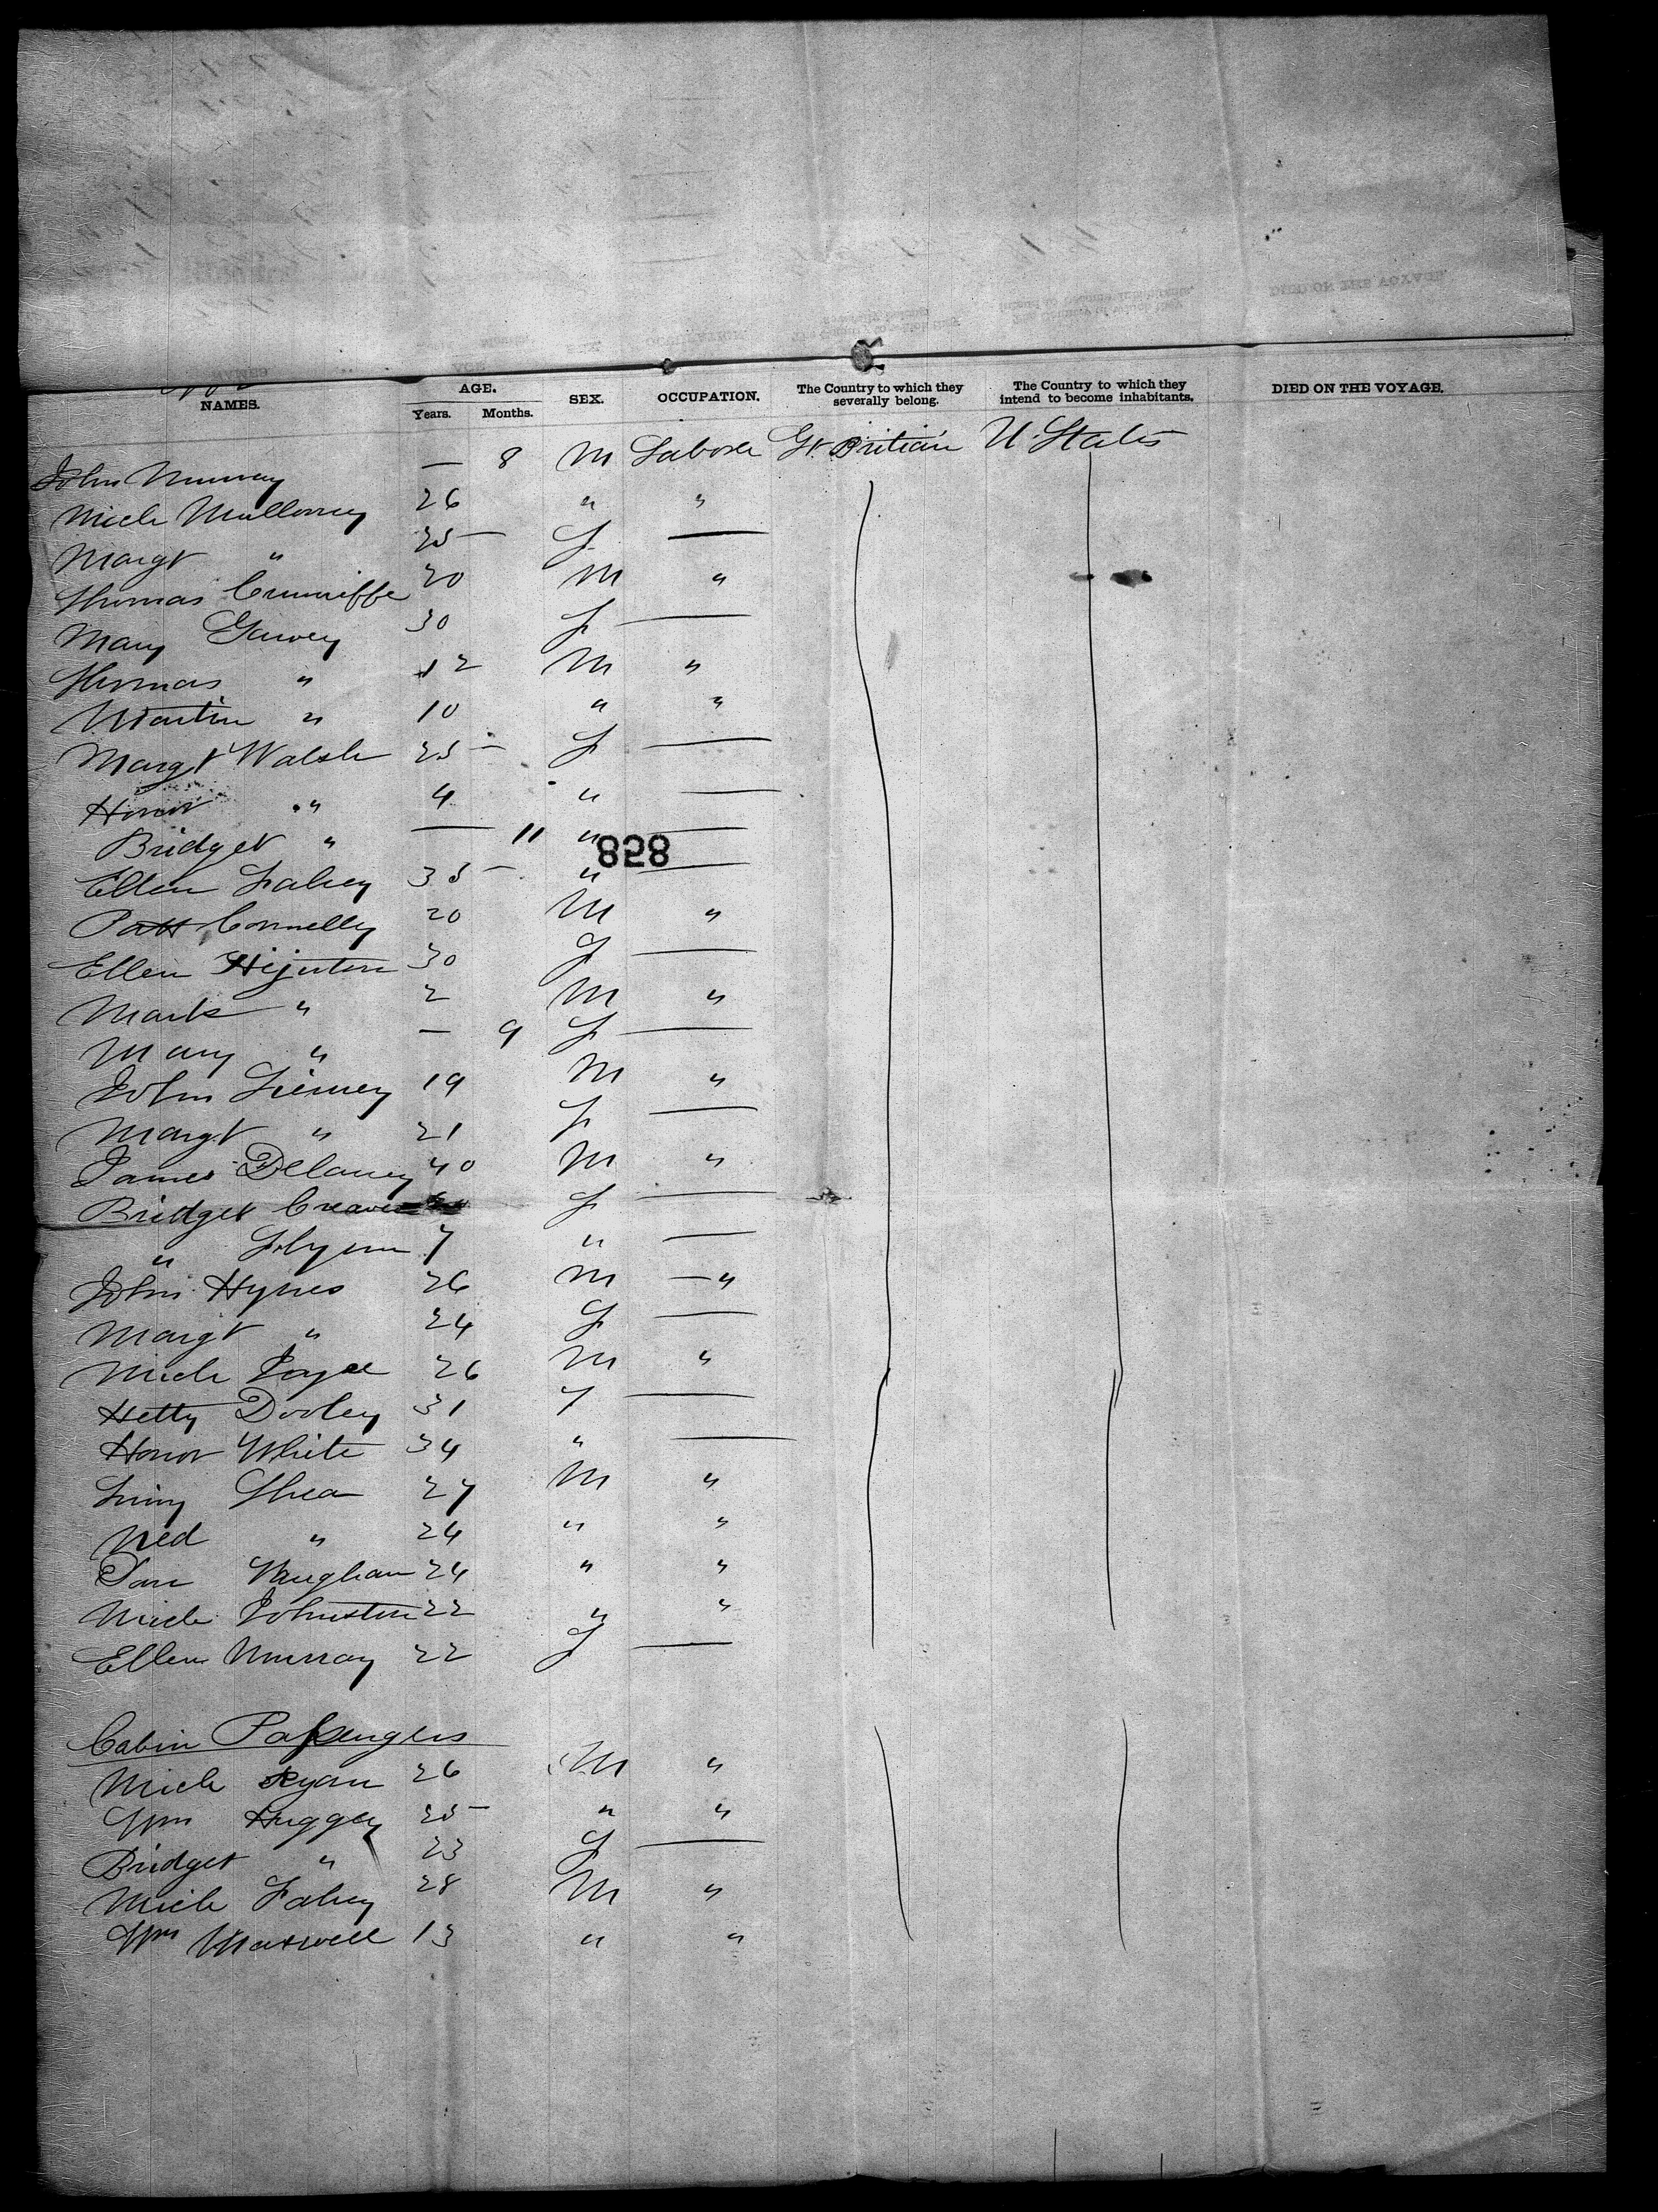 NAMES. AGE. Years. Months. SEX. OCCUPATION. The Country to which they severally belong. The Country to which they intend to become inhabitants. DIED ON THE VOYAGE.
John Murray — 8 M Laborer Gt Britian U. States
Mich Mullowney 26 " "
Margt " 25 — F —
Thomas Cunniffe 20 M "
Mary Garvey 30 F —
Thomas " 12 M "
Martin " 10 " "
Margt Walsh 25 — F —
Honor " 4 " —
Bridget " — 11 " —
858
Ellen Fahey 35 — " —
Patt Connelly 20 M "
Ellen 30 F —
Mark " 2 M "
Mary " — 9 F —
John 19 M "
Margt " 21 F —
James Delaney 40 M "
Bridget F —
" Flynn 7 " —
John Hynes 26 M — "
Margt " 24 F —
Mich Joyce 26 M "
Hetty Dooley 31 F —
Honor White 34 " —
Shea 27 M "
Ned " 24 " "
Vaughan 24 " "
Mich Johnston 22 " "
Ellen Murray 22 F —
Cabin Passengers
Mich Ryan 26 M "
Wm 25 — " "
Bridget " 23 F —
Mich Fahey 28 M "
Wm Maxwell 13 " "